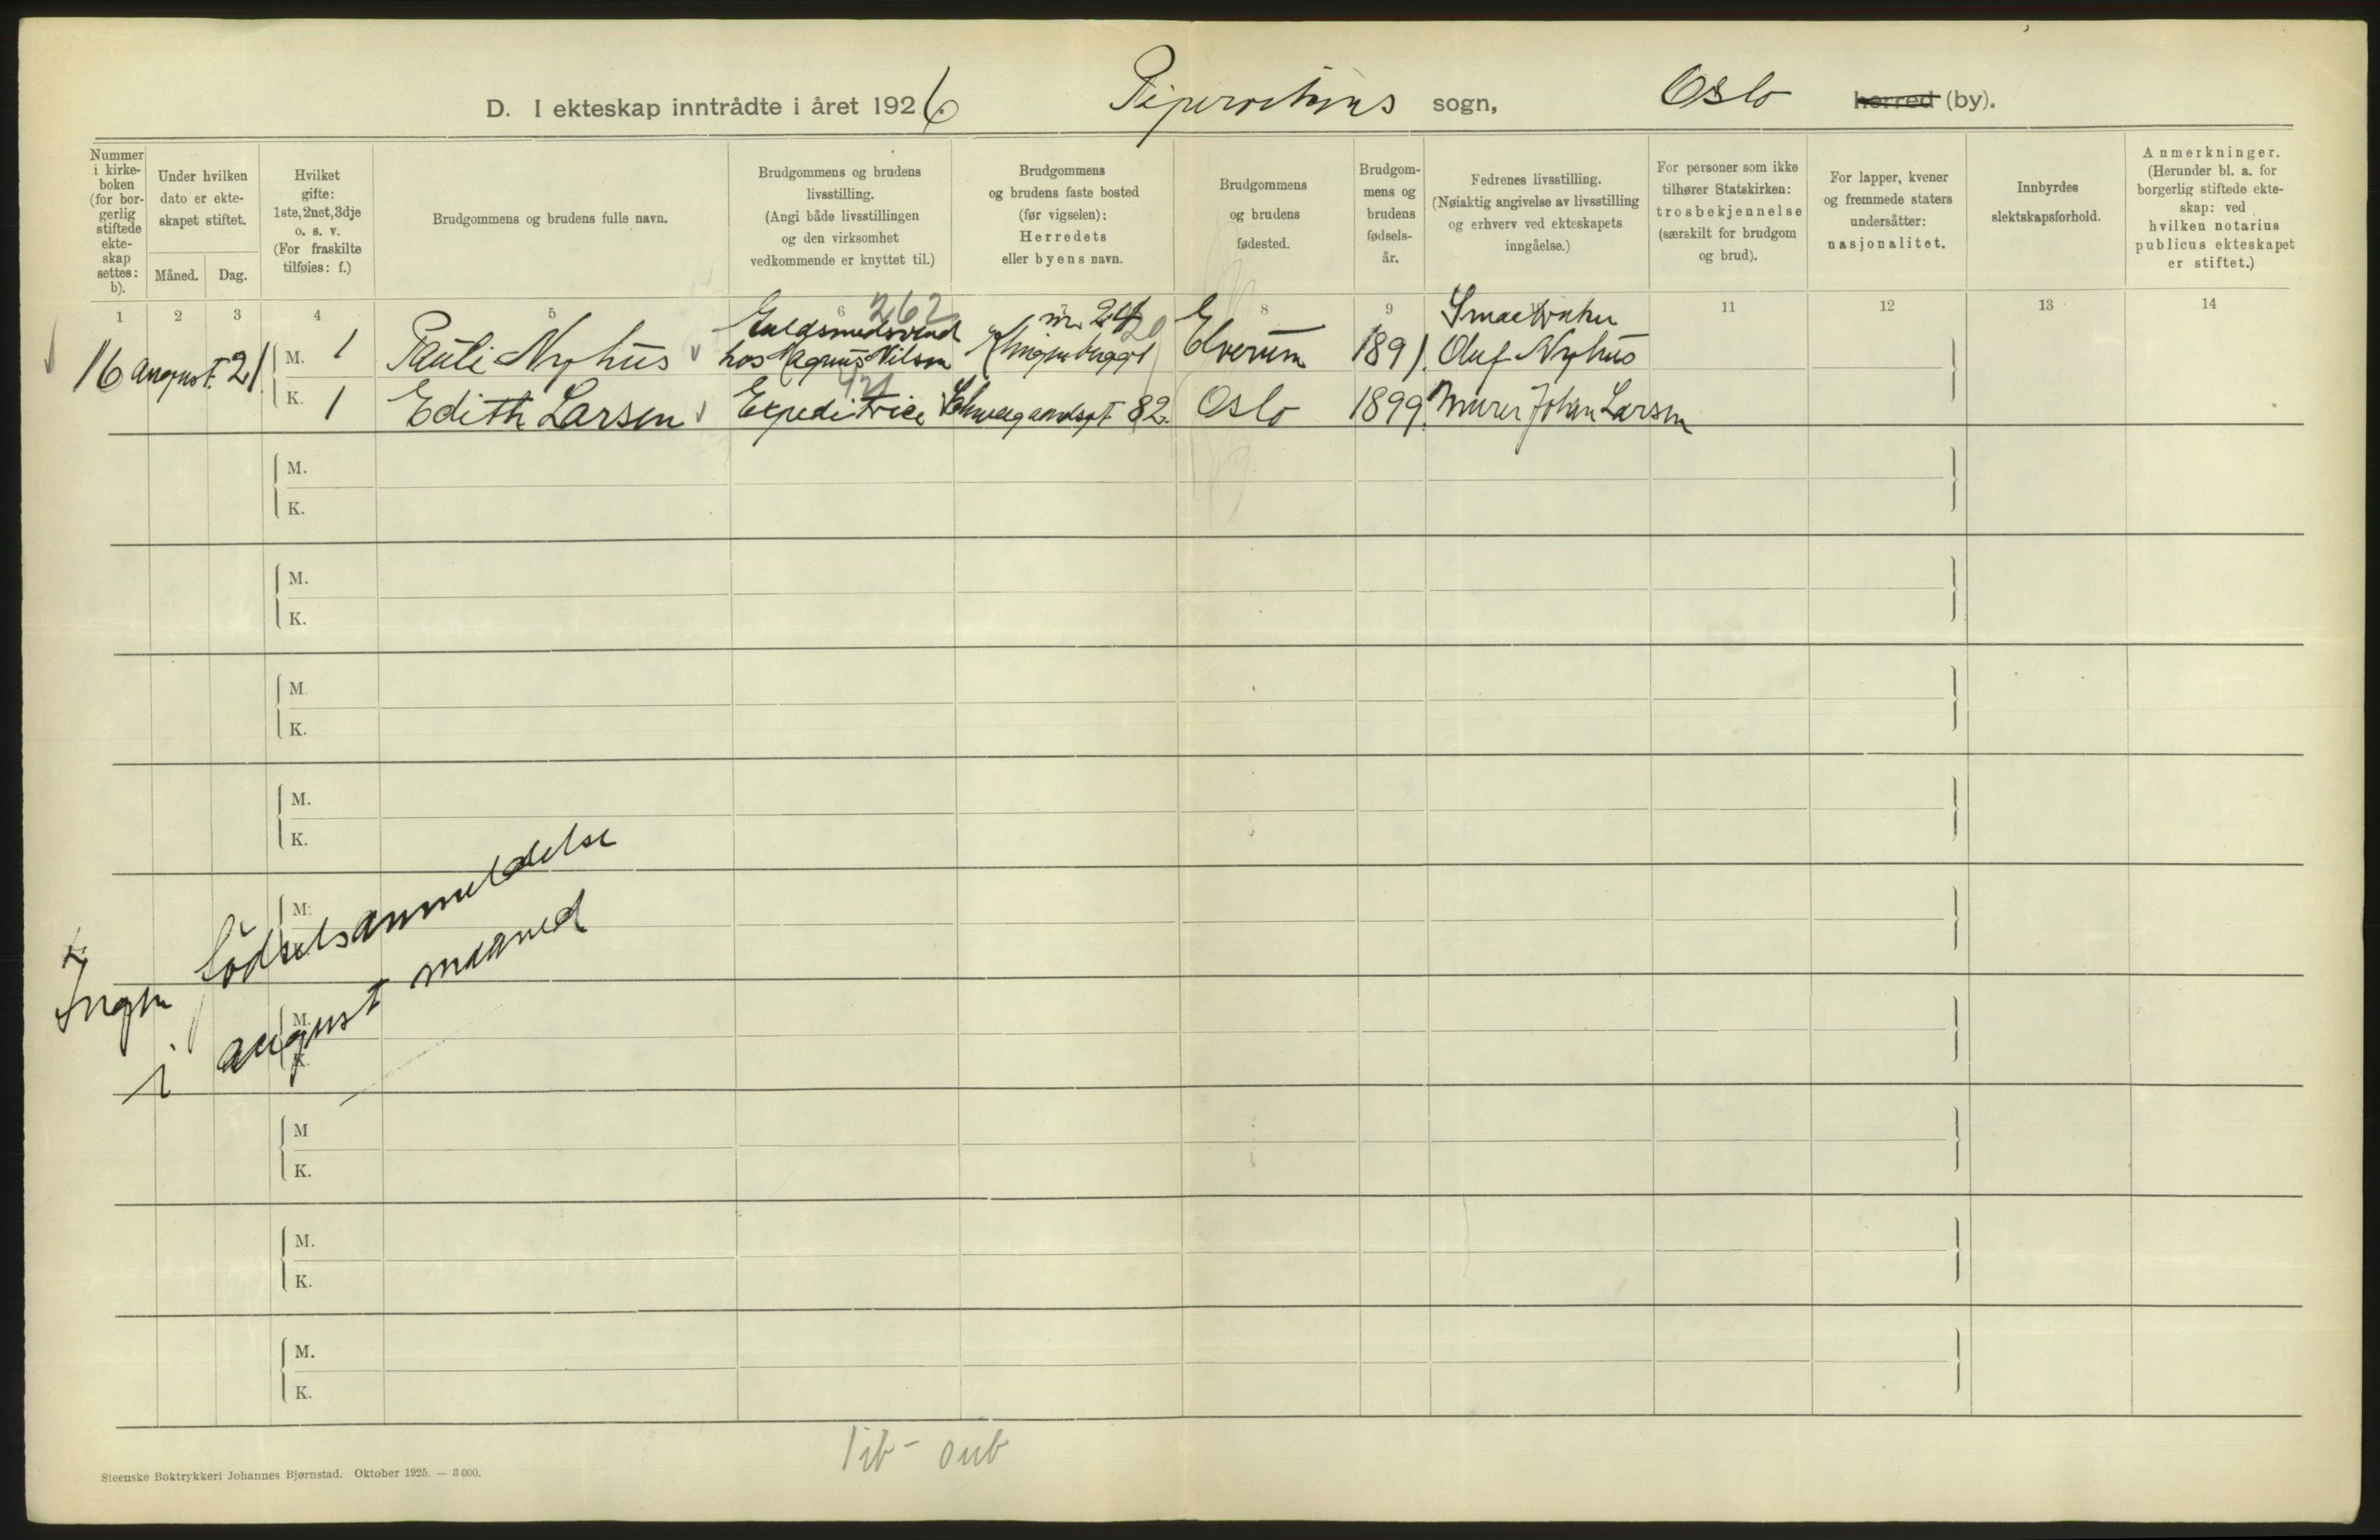 D. I ekteskap inntrådte i året 1926. Pipervikens sogn, Oslo herred (by).
Nummer i kirkeboken (for borgerlig stiftede ekteskap settes: b).
Under hvilken dato er ekteskapet stiftet.
Måned. Dag.
Hvilket gifte: 1ste, 2net, 3dje o. s. v. (For fraskilte tilføies: f.)
Brudgommens og brudens fulle navn.
Brudgommens og brudens livsstilling. (Angi både livsstillingen og den virksomhet vedkommende er knyttet til.)
Brudgommens og brudens faste bosted (før vigselen): Herredets eller byens navn.
Brudgommens og brudens fødested.
Brudgommens og brudens fødselsår.
Fedrenes livsstilling. (Nøiaktig angivelse av livsstilling og erhverv ved ekteskapets inngåelse.)
For personer som ikke tilhører Statskirken: trosbekjennelse (særskilt for brudgom og brud).
For lapper, kvener og fremmede staters undersåtter: nasjonalitet.
Innbyrdes slektskapsforhold.
Anmerkninger. (Herunder bl. a. for borgerlig stiftede ekteskap: ved hvilken notarius publicus ekteskapet er stiftet.)
1 2 3 4 5 6 8 9 11 12 13 14
262
16 august. 21. M. 1 Pauli Nyhus Guldsmedsvend hos Magnus Nilsen Klingenberggt nr. 24 20 Elverum 1891. Smaabruker Oluf Nyhus
K. 1 Edith Larsen Expeditrice Schweigaardsgt 82. Oslo 1899. Murer Johan Larsen
M.
K.
M.
K.
M.
K.
M.
K.
M.
Ingen födselsanmeldelse
M.
K.
i august maaned
M
K.
M.
K.
M.
K.
Steenske Boktrykkeri Johannes Bjørnstad. Oktober 1925. — 3000.